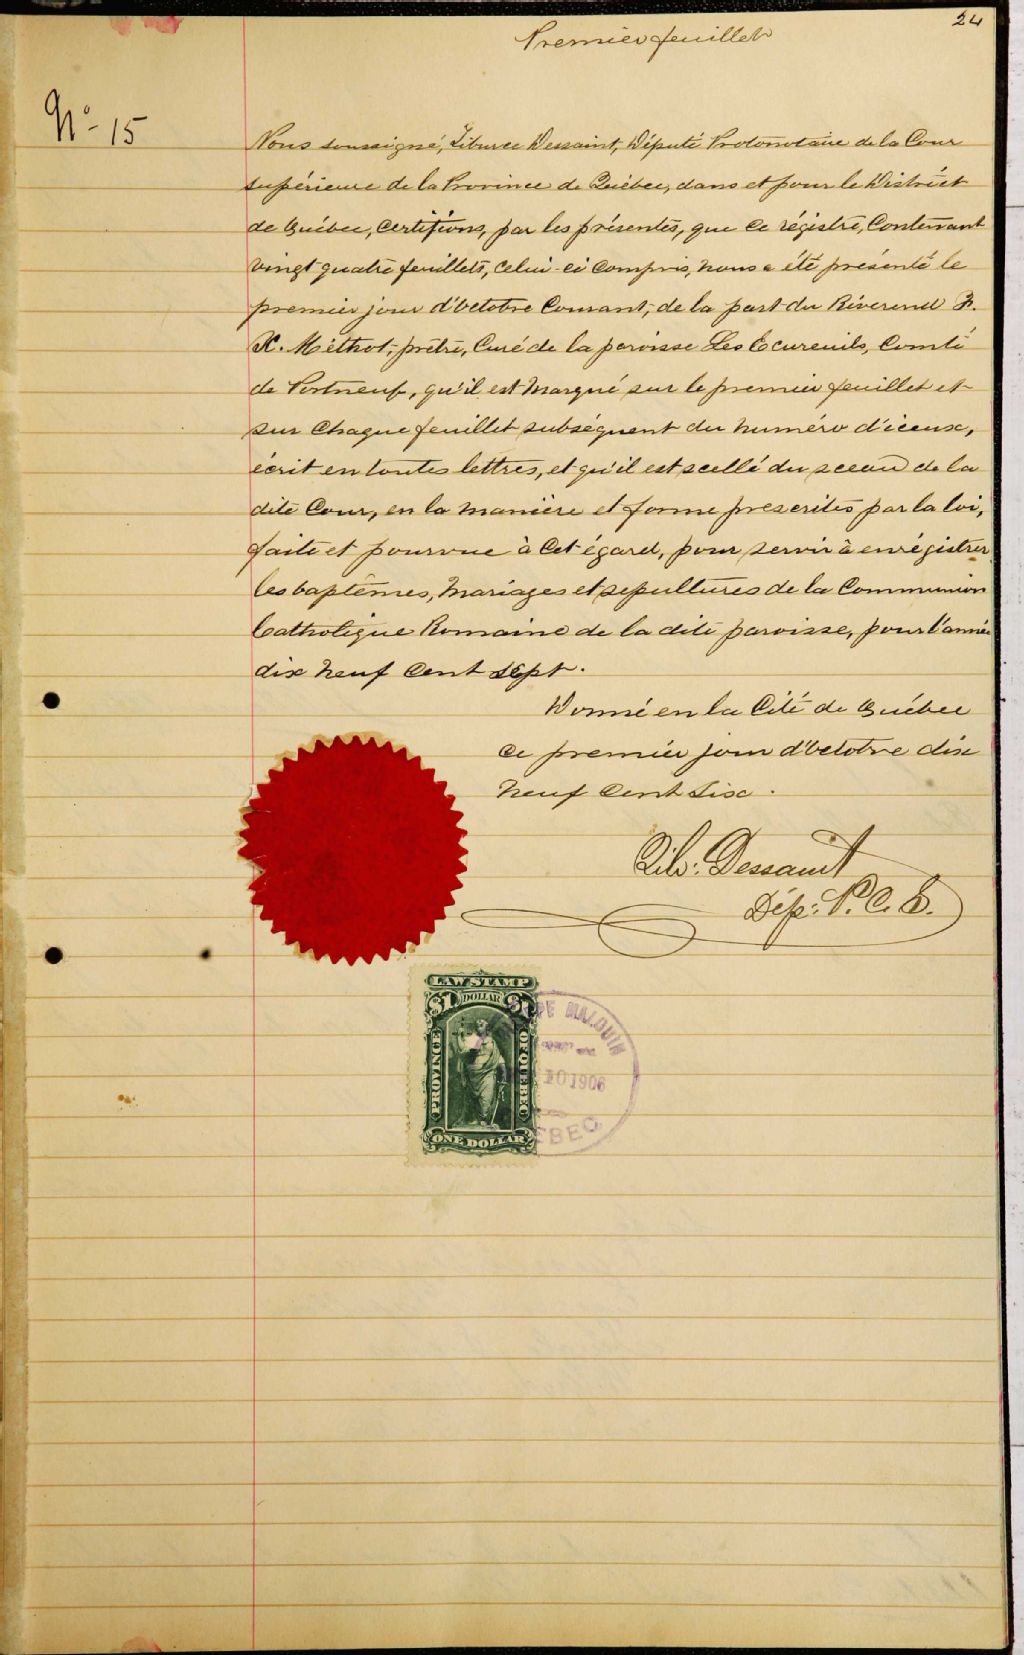 24
Premier feuillet
No- 15
Nous soussigné, Tiburce Dessaint, Député Protonotaire de la Cour
supérieure de la Province de Québec, dans et pour le District
de Québec, certifions, par les présentes, que ce régistre, contenant
vingt quatre feuillets, celui-ci compris, nous a été présenté le
premier jour d'octobre courant, de la part du Réverend F.
X. Méthot, prêtre, Curé de la paroisse Les Ecureuils, Comté
de Portneuf, qu'il est marqué sur le premier feuillet et
sur chaque feuillet subséquent du numéro d'iceux,
écrit en toutes lettres, et qu'il est scellé du sceau de la
dite Cour, en la manière et forme prescrites par la loi,
faite et pourvue à cet égard, pour servir à enrégistrer
les baptêmes, mariages et sepultures de la Communion
Catholique Romaine de la dite paroisse, pour l'année
dix neuf cent sept.
Donné en la Cité de Québec
ce premier jour d'octobre dix
neuf cent six.
Tib: Dessaint
Dép: P. C. S.
LAW STAMP
$1 DOLLAR $1
PROVINCE OF QUEBEC
ONE DOLLAR
MALOUIN
10 1906
EBEC